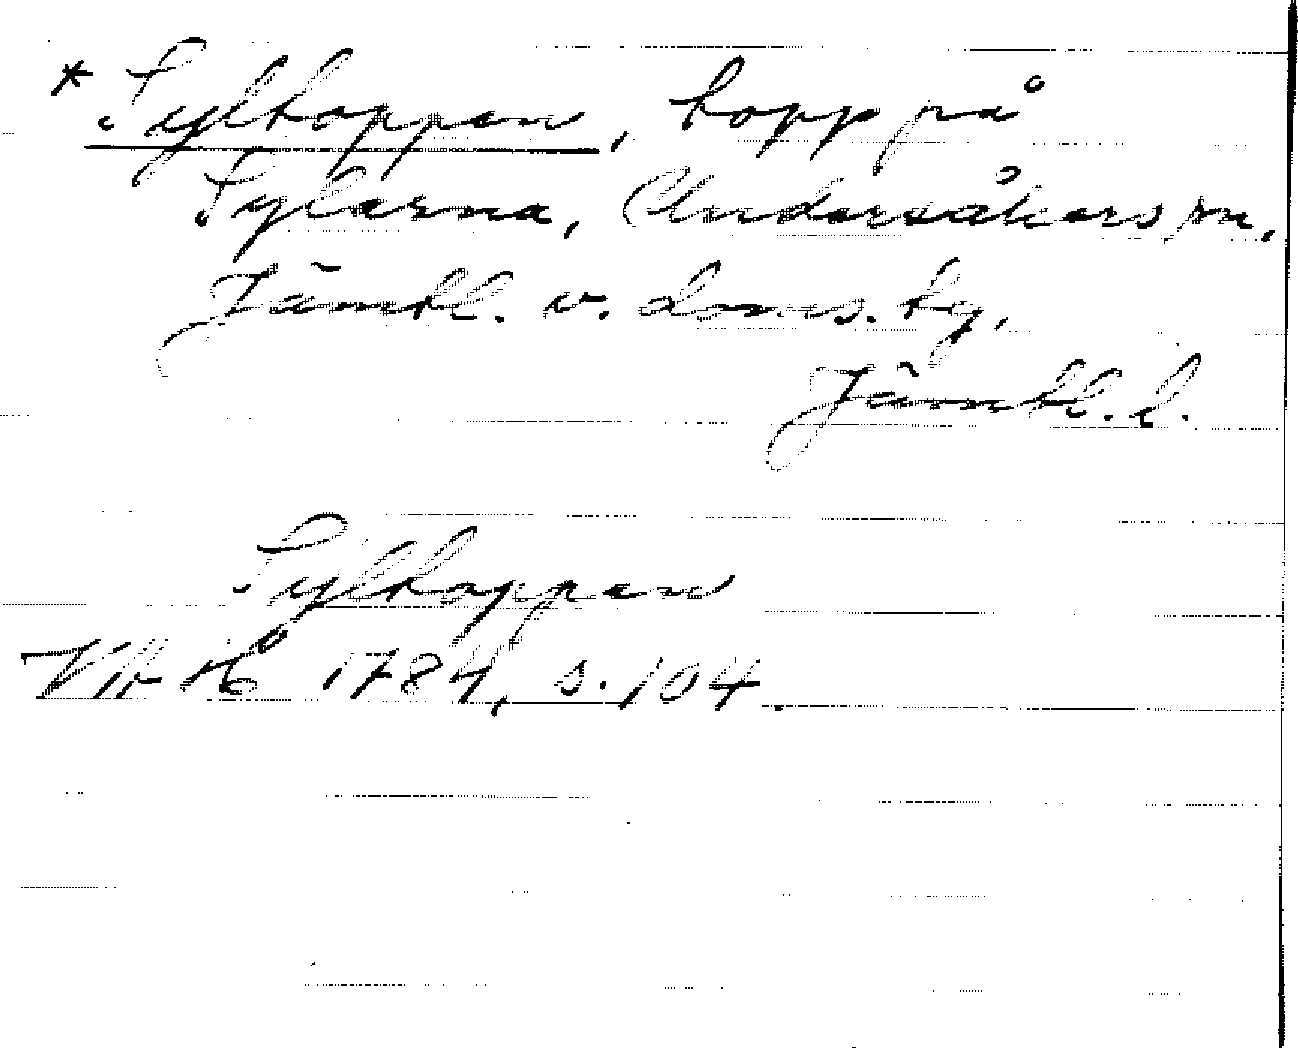 * Syltoppen, topp på
Sylarna, Undersåkers sn.
Jämtl. v. doms. tg.
Jämtl. l.
Syltoppen
1784, s. 104.